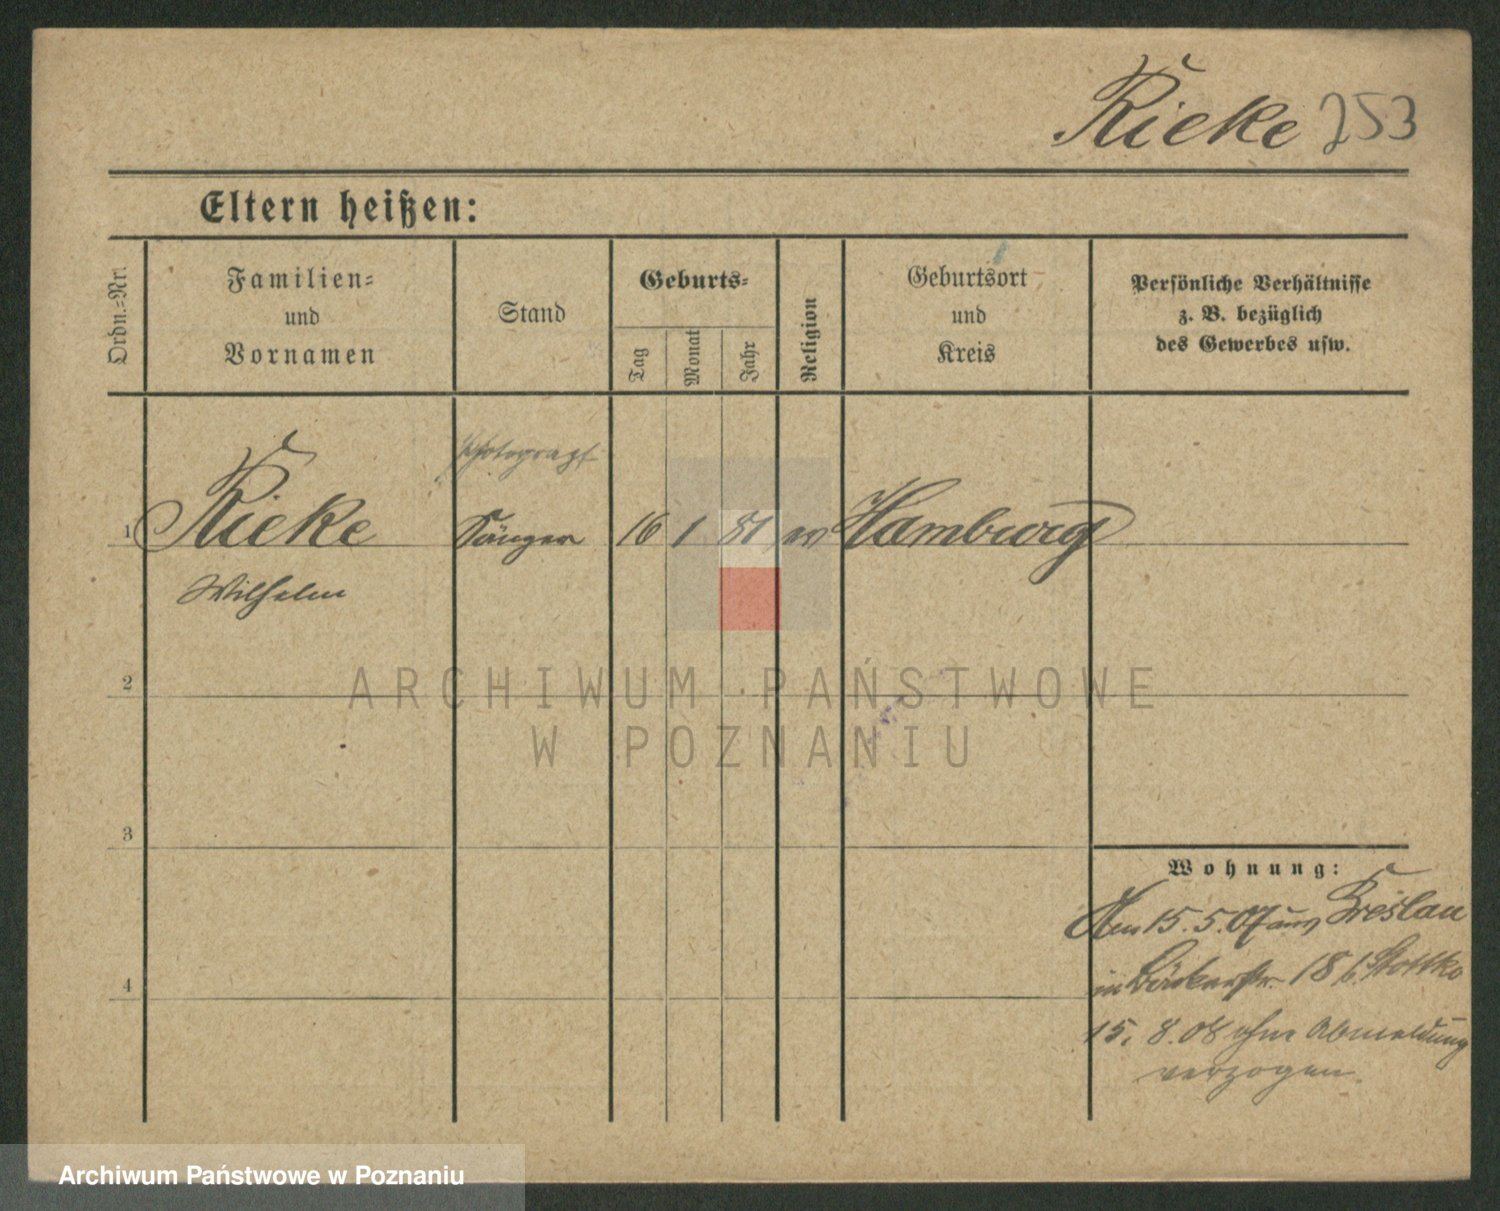 Rieke 253
Eltern heißen:
Ordn.-Nr.
Familien-
und
Vornamen
Stand
Geburts-
Tag
Monat
Jahr
Religion
Geburtsort
und
Kreis
Persönliche Verhältnisse
z. B. bezüglich
des Gewerbes usw.
Photograph
1 Rieke Sänger 16 1 81 ev Hamburg
Wilhelm
ARCHIWUM PAŃSTWOWE
W POZNANIU
2
3
Wohnung:
15.5.07 aus Breslau
in Bäckerstr. 18 b.
4
15. 8. 08 ohne Abmeldung
verzogen.
Archiwum Państwowe w Poznaniu